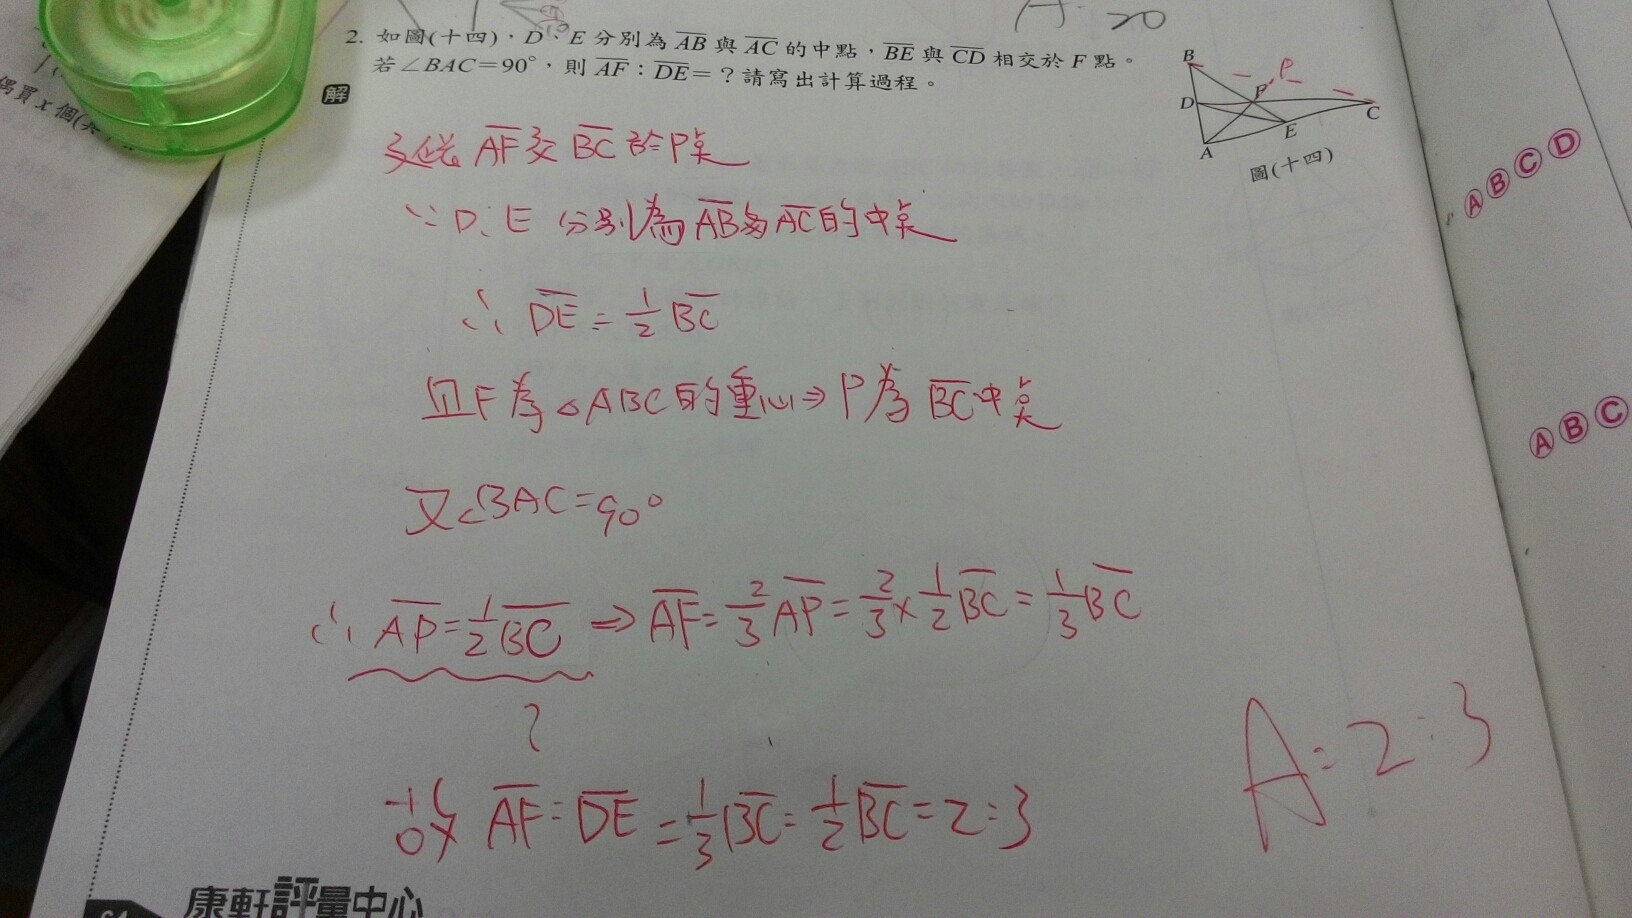 A: 20
2. 如圖(十四),D、E 分別為 AB 與 AC 的中點,BE 與 CD 相交於 F 點。
若∠BAC=90°,則 AF:DE=?請寫出計算過程。
解
B
P
D
F
C
E
A
圖(十四)
延長 AF 交 BC 於 P 點
∵ D、E 分別為 AB 為 AC 的中點
∴ DE = 1/2 BC
且 F 為 △ABC 的重心⇒ P 為 BC 中點
又∠BAC=90°
∴ AP = 1/2 BC ⇒ AF = 2/3 AP = 2/3 × 1/2 BC = 1/3 BC
?
故 AF : DE = 1/3 BC : 1/2 BC = 2:3
A: 2:3
偶買 x 個(
A B C D
A B C
康軒評量中心